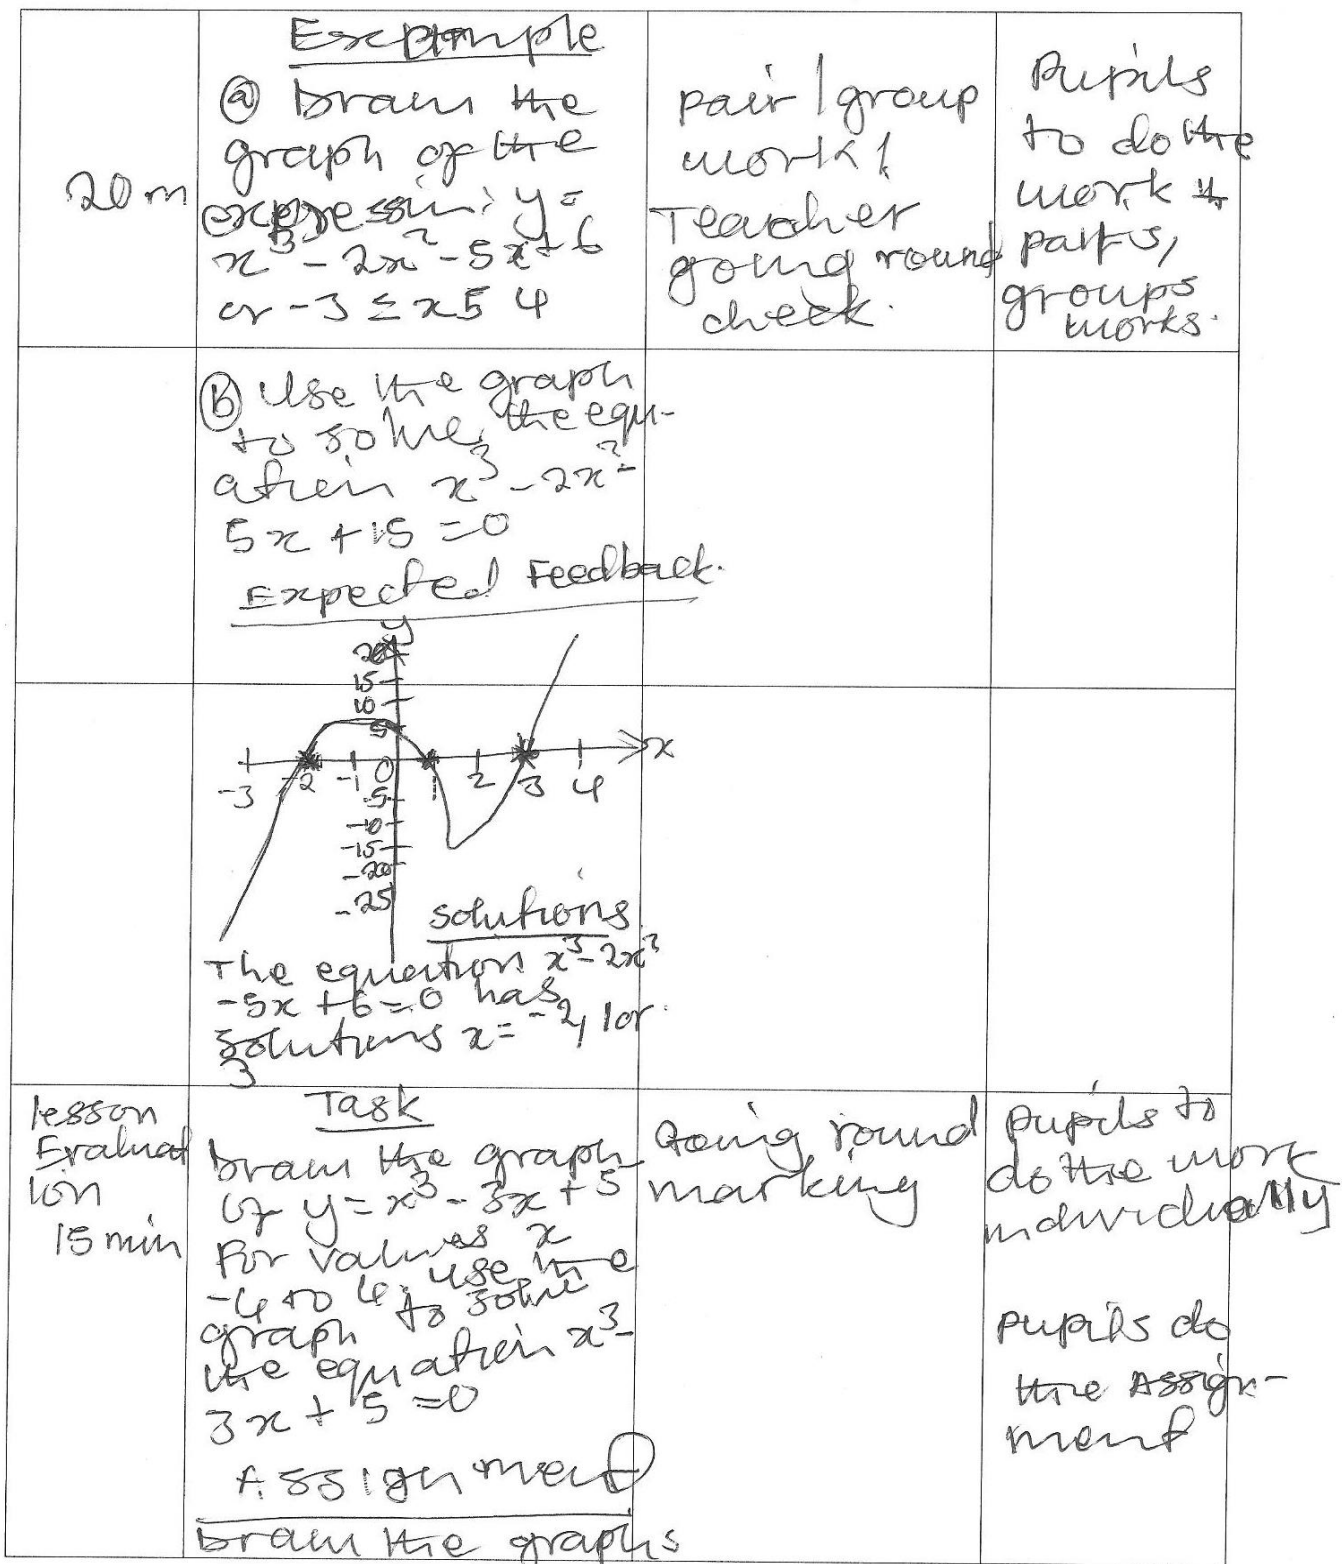 Example
(a) Draw the
graph of the
expression: y =
x³ - 2x² - 5x + 6
or -3 ≤ x 5 4
20 m
pair / group
work /
Teacher
going round
check.
Pupils
to do the
work in
pairs,
groups
works.
(B) Use the graph
to solve, the equ-
ation x³ - 2x² -
5x + 15 = 0
Expected Feedback.
y
20
15
10
5
-3 -2 -1 0 1 2 3 4 x
-5
-10
-15
-20
-25
solutions
The equation x³ - 2x³
-5x + 6 = 0 has
solutions x = -2, 1 or
3
lesson
Evaluat
ion
15 min
Task
Draw the graph
of y = x³ - 3x + 5
For values x
-4 to 4; use the
graph to solve
the equation x³ -
3x + 5 = 0
Assignment
Draw the graphs
Going round
marking
pupils to
do the work
individually
pupils do
the Assign-
ment